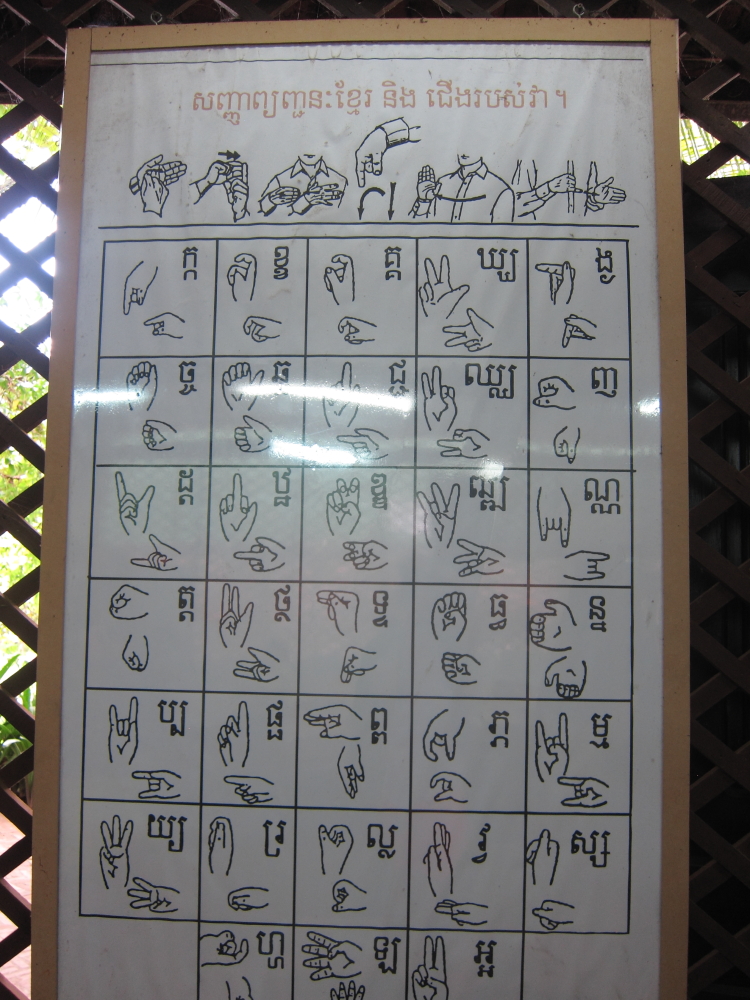 សញ្ញាព្យញ្ជនៈខ្មែរ និង ជើងរបស់វា ។
ក្ក ខ្ខ គ្គ ឃ្ឃ ង្ង
ច្ច ឆ្ឆ ជ្ជ ឈ្ឈ ញ
ដ្ដ ឋ្ឋ ឌ្ឌ ឍ្ឍ ណ្ណ
ត្ត ថ្ថ ទ្ទ ធ្ធ ន្ន
ប្ប ផ្ផ ព្ព ភ្ភ ម្ម
យ្យ រ្រ ល្ល វ្វ ស្ស
ហ្ហ ឡ អ្អ